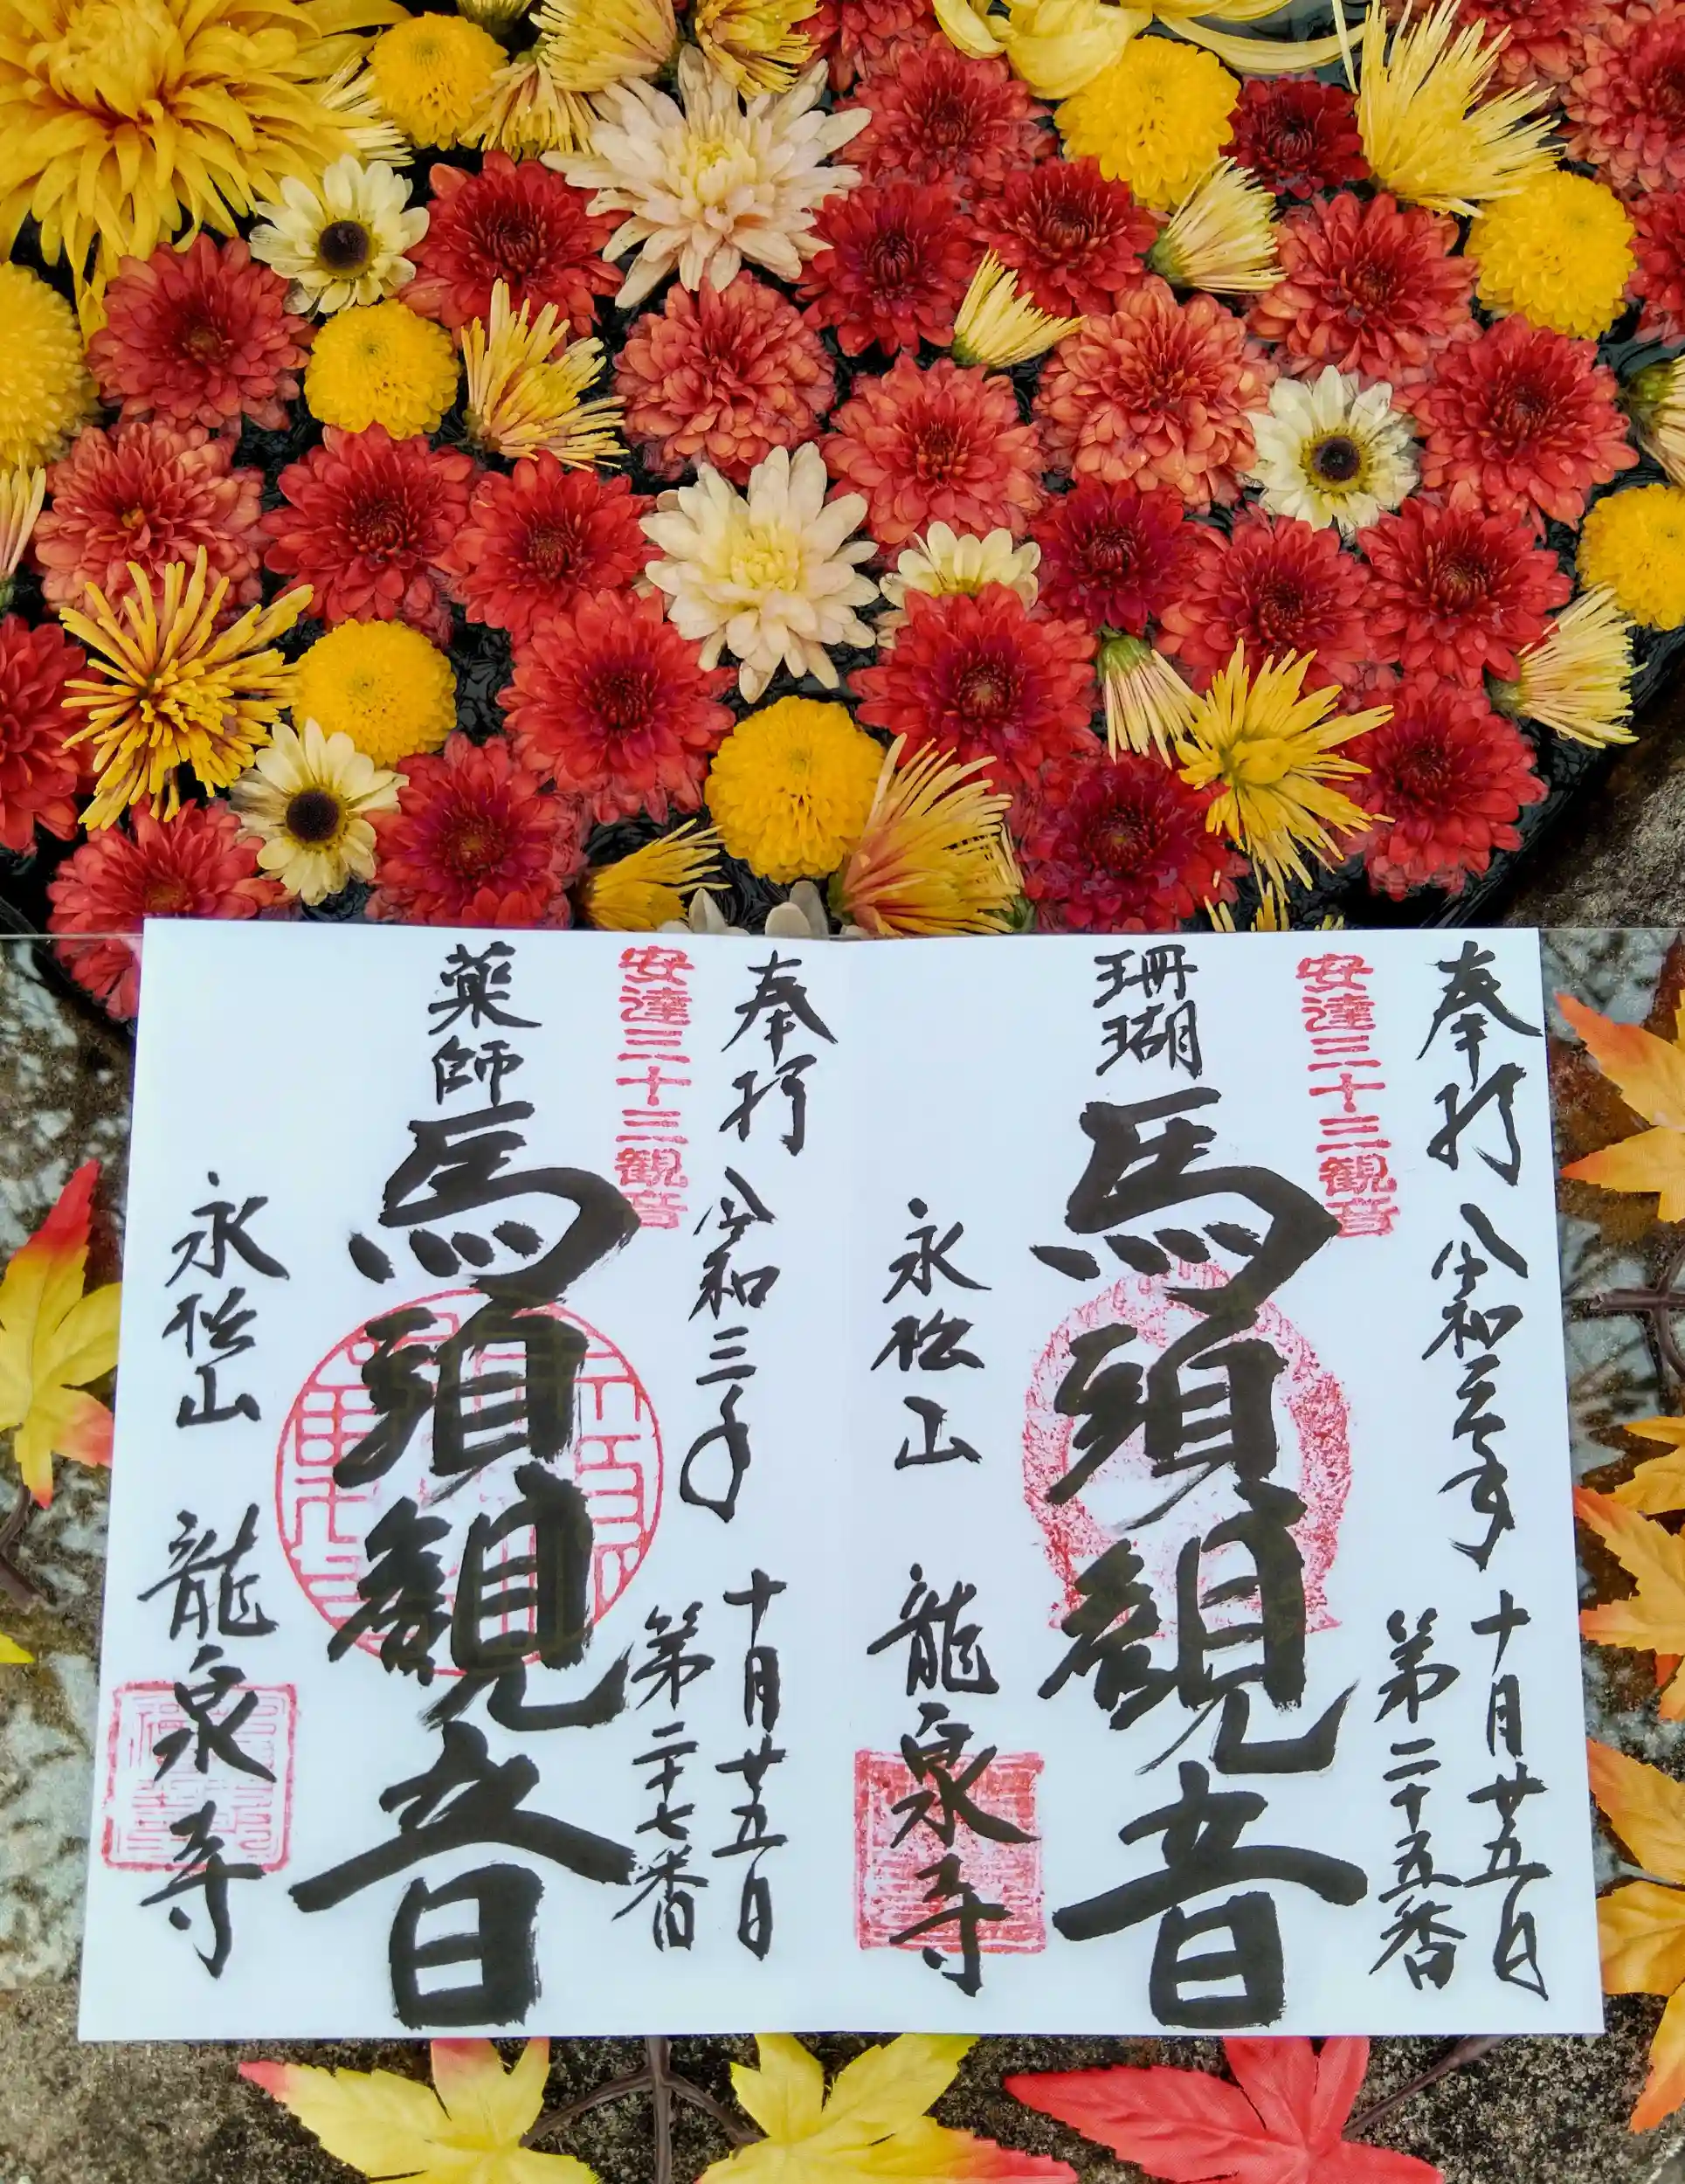 奉拝
令和三年
十月廿五日
第二十五番
安達三十三観音
珊瑚
馬頭観音
永松山
龍泉寺
奉拝
令和三年
十月廿五日
第二十七番
安達三十三観音
薬師
馬頭観音
永松山
龍泉寺